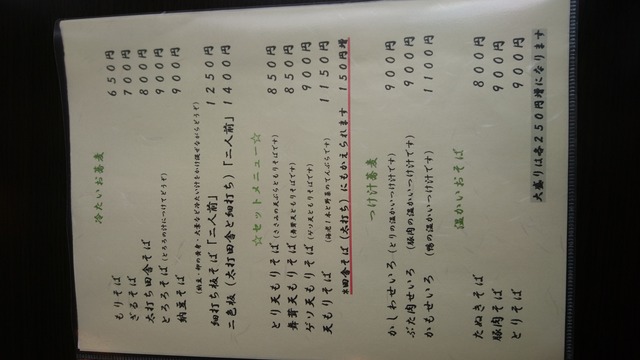 冷たいお蕎麦
もりそば 650円
ざるそば 700円
太打ち田舎そば 800円
とろろそば(とろろの汁につけてどうぞ) 900円
納豆そば 900円
(納豆・卵の黄身・大葉など冷たい汁をかけ混ぜながらどうぞ)
細打ち板そば「二人前」 1250円
二色板(太打田舎と細打ち)「二人前」 1400円
☆セットメニュー☆
とり天もりそば(ささみの天ぷらともりそばです) 850円
舞茸天もりそば(舞茸天ともりそばです) 850円
ゲソ天もりそば(ゲソ天ともりそばです) 900円
天もりそば(海老1本と野菜のてんぷらです) 1150円
*田舎そば(太打ち)にもかえられます 150円増
つけ汁蕎麦
かしわせいろ(とりの温かいつけ汁です) 900円
ぶた肉せいろ(豚肉の温かいつけ汁です) 900円
かもせいろ(鴨の温かいつけ汁です) 1100円
温かいおそば
たぬきそば 800円
豚肉そば 900円
とりそば 900円
大盛りは各250円増になります